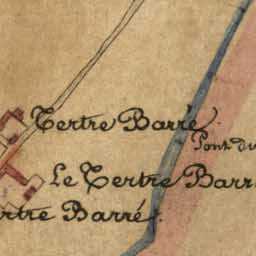 Tertre Barré
Pont du
Le Tertre Barr
rtre Barré.